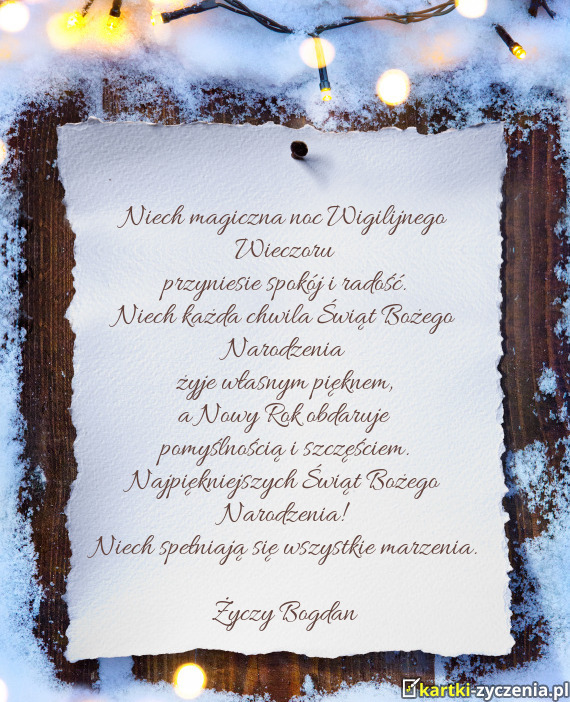 Niech magiczna noc Wigilijnego
Wieczoru
przyniesie spokój i radość.
Niech każda chwila Świąt Bożego
Narodzenia
żyje własnym pięknem,
a Nowy Rok obdaruje
pomyślnością i szczęściem.
Najpiękniejszych Świąt Bożego
Narodzenia!
Niech spełniają się wszystkie marzenia.
Życzy Bogdan
kartki-zyczenia.pl